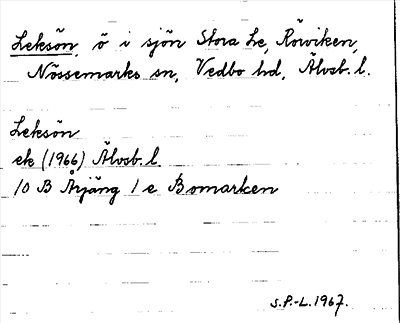 Leksön, ö i sjön Stora Le, Röviken,
Nössemarks sn, Vedbo hd, Älvsb. l.
Leksön
ek (1966) Älvsb. l.
10 B Årjäng 1 e Bomarken
S.P.-L. 1967.